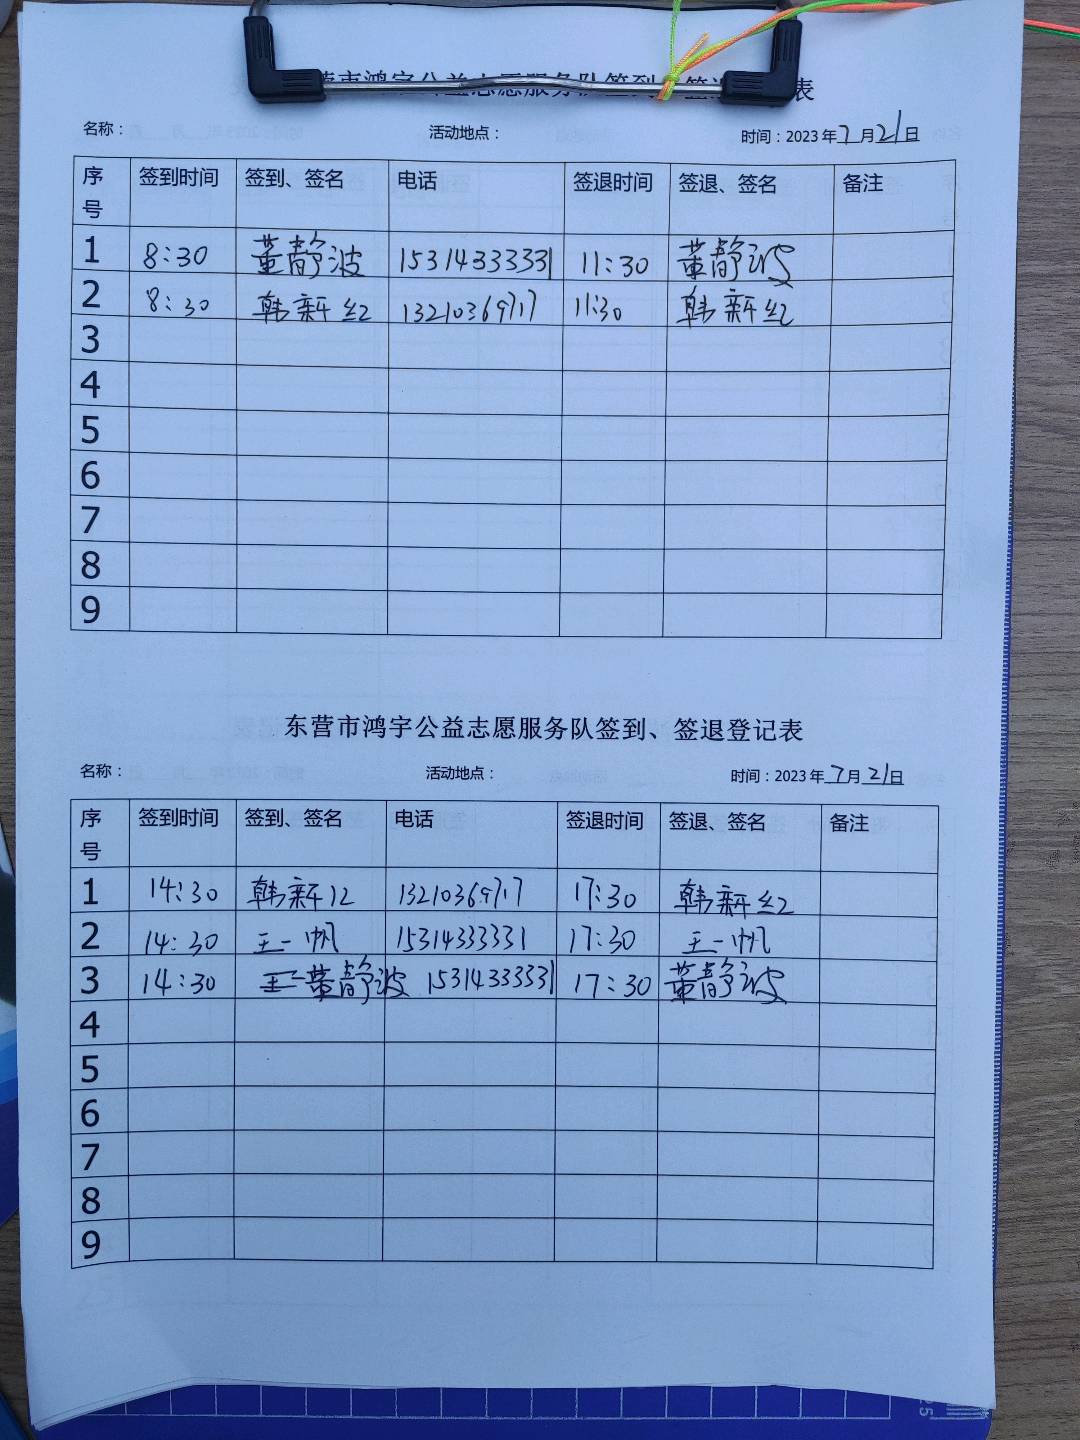 东营市鸿宇公益志愿服务队签到、签退登记表
名称： 活动地点： 时间：2023年7月21日
序号 签到时间 签到、签名 电话 签退时间 签退、签名 备注
1 8:30 董静波 15314333331 11:30 董静波
2 8:30 韩新红 13210369717 11:30 韩新红
3
4
5
6
7
8
9
东营市鸿宇公益志愿服务队签到、签退登记表
名称： 活动地点： 时间：2023年7月21日
序号 签到时间 签到、签名 电话 签退时间 签退、签名 备注
1 14:30 韩新红 13210369717 17:30 韩新红
2 14:30 王一帆 15314333331 17:30 王一帆
3 14:30 董静波 15314333331 17:30 董静波
4
5
6
7
8
9